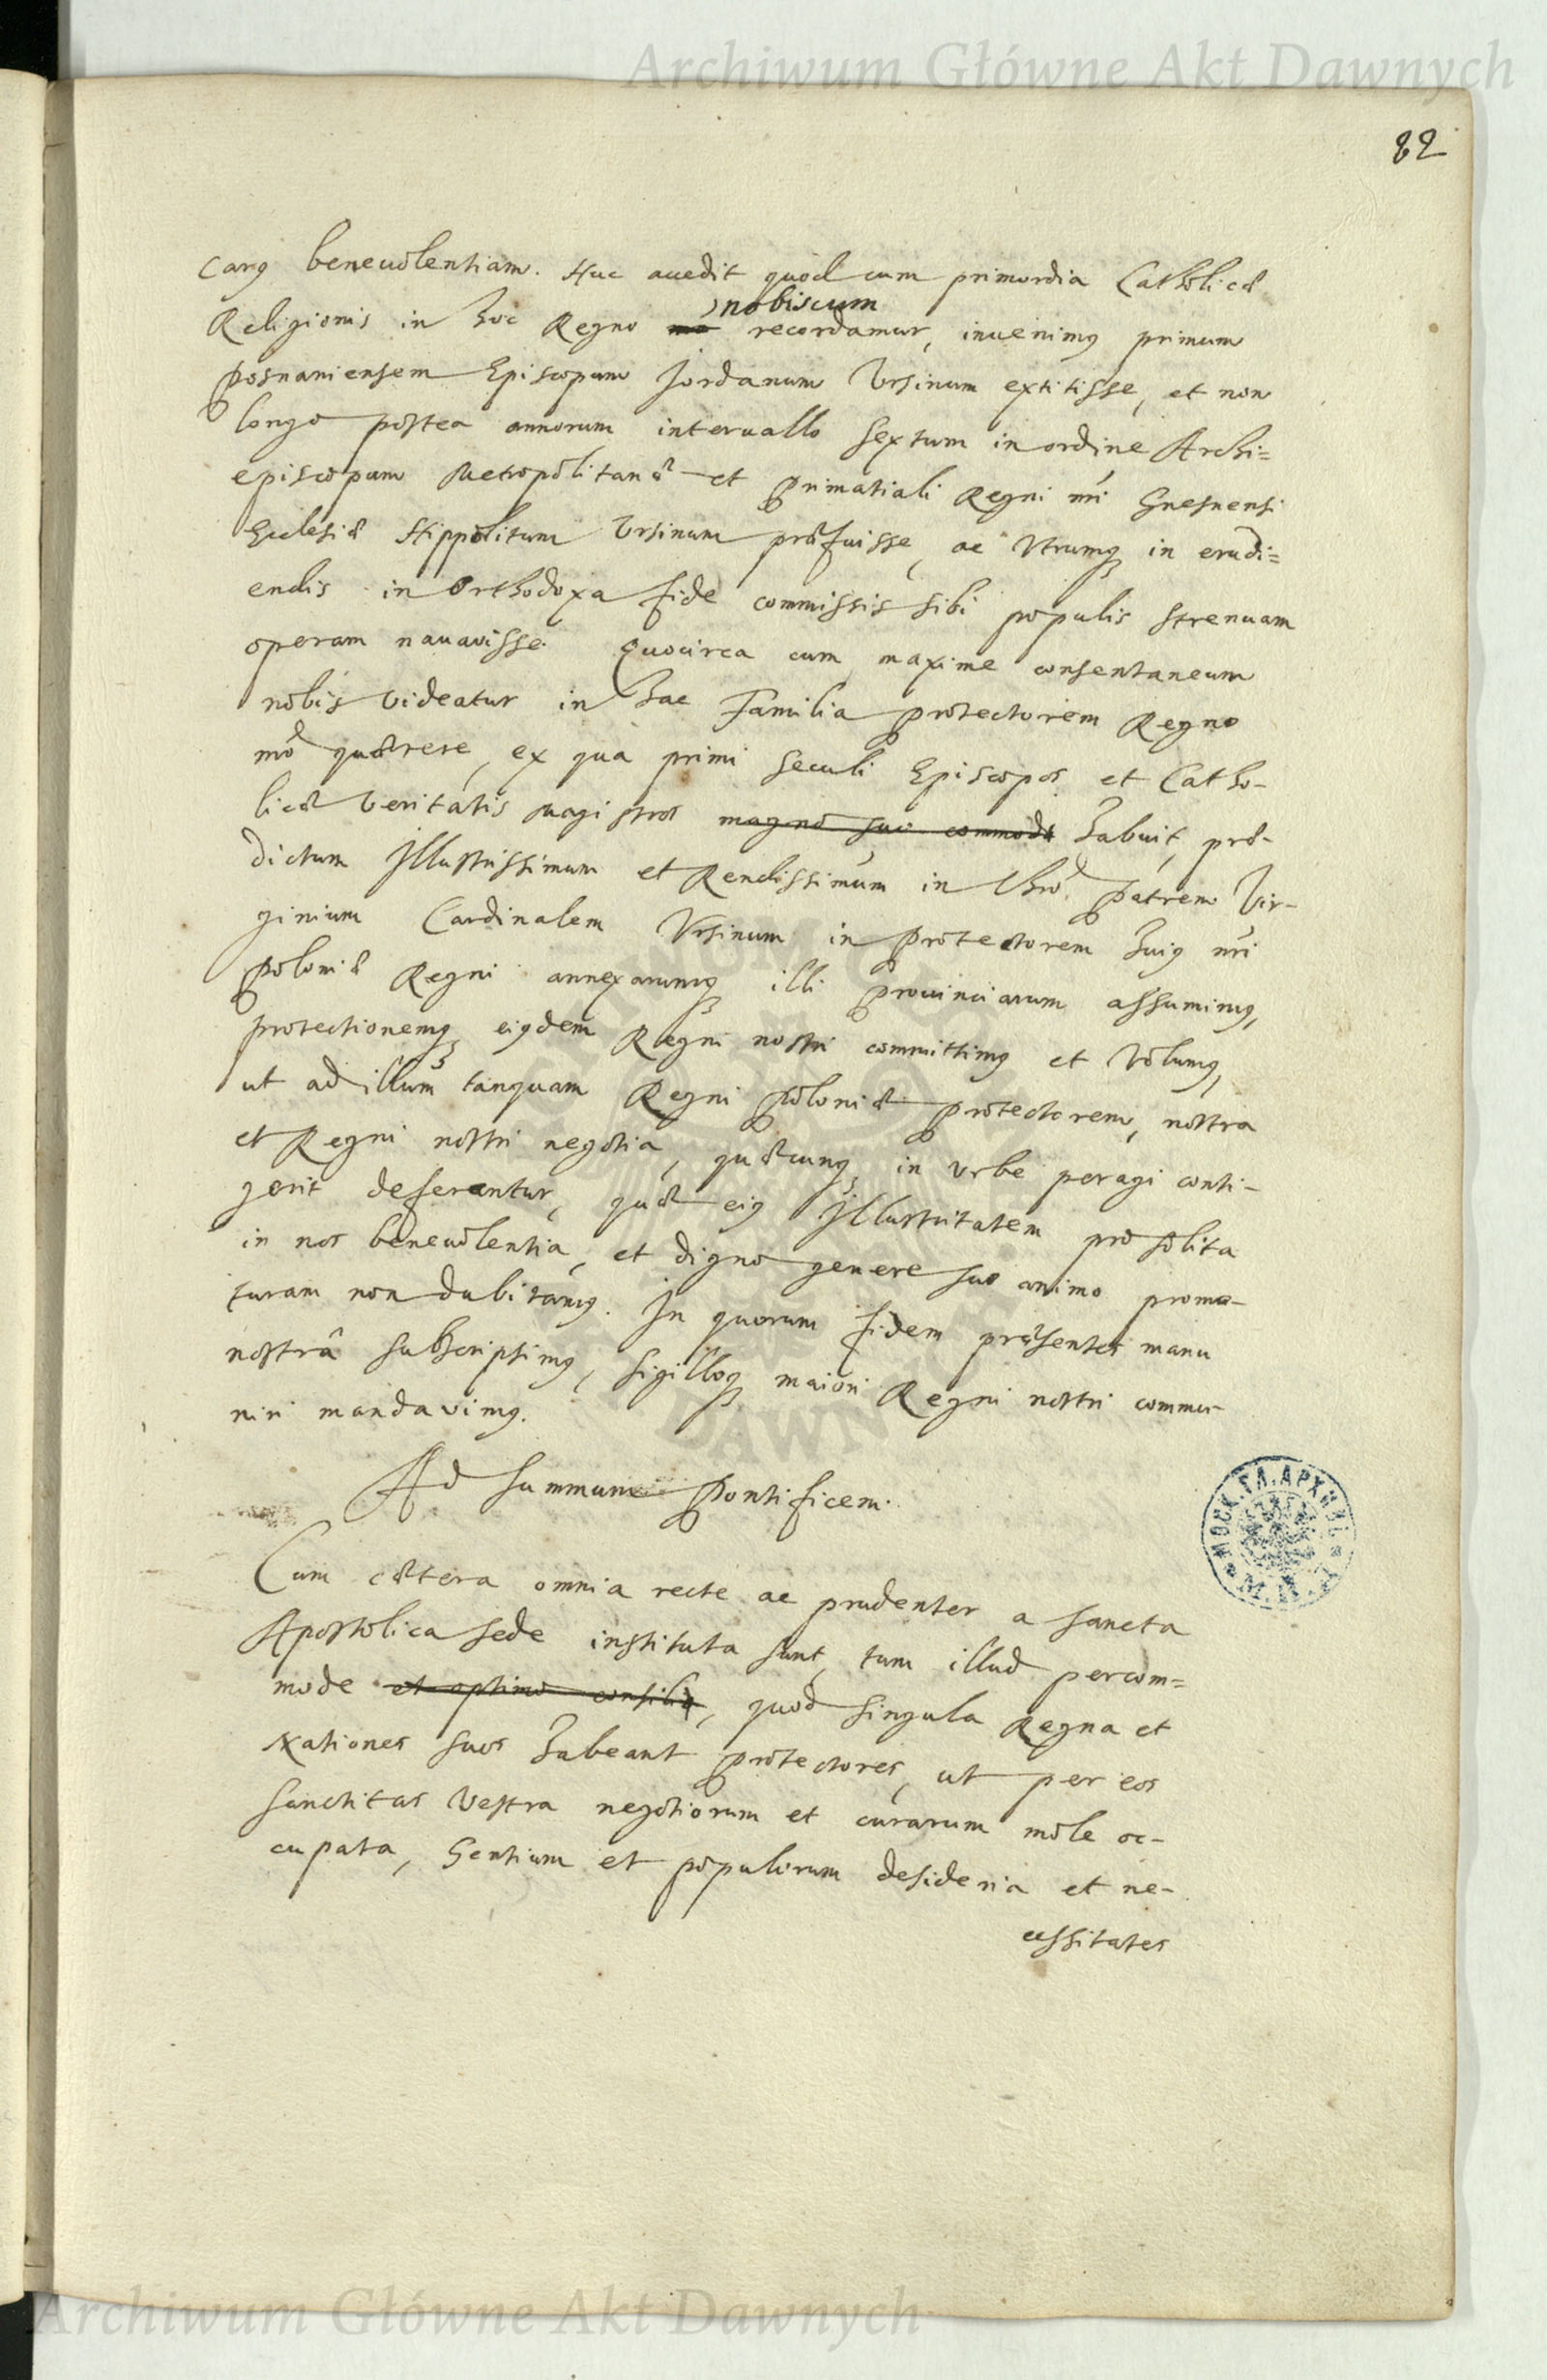 Archiwum Główne Akt Dawnych
82
carꝯ beneuolentiam. Huc accedit quod cum primordia Catholicæ
nobiscum
Religionis in hoc Regno recordamur, inuenimꝯ primum
Posnaniensem Episcopum Jordanum Vrsinum extitisse, et non
longo postea annorum interuallo sextum in ordine Archi=
episcopum Metropolitanæ et Primatiali Regni nri Gnesnensi
Ecclesiæ Hippolitum Vrsinum præfuisse, ac Vtrumqꝫ in erudi=
endis in Orthodoxa fide commissis sibi populis strenuam
operam nauauisse. Quocirca cum maxime consentaneum
nobis videatur in hac Familia protectorem Regno
nrõ quærere, ex qua primi seculi Episcopos et Catho-
licæ Veritatis Magistros magno suo commodo habuit, præ-
dictum Illustrissimum et Rendissimum in Chrõ Patrem Vir-
ginium Cardinalem Vrsinum in Protectorem huiꝯ nri
Poloniæ Regni annexarumqꝫ illi Prouinciarum assumimꝯ,
protectionemqꝫ eiꝯdem Regni nostri committimꝯ et Volumꝯ,
ut ad illum tanquam Regni Poloniæ Protectorem, nostra
et Regni nostri negotia, quæcunqꝫ in Vrbe peragi conti-
gerit deferantur, quæ eiꝯ Illustritatem pro solita
in nos beneuolentia, et digno genere suo animo promo-
turam non dubitamꝯ. In quorum fidem præsentes manu
nostrâ subscripsimꝯ, sigilloqꝫ maiori Regni nostri commu-
niri mandavimꝯ.
Ad summum Pontificem.
Cum cætera omnia recte ac prudenter a sancta
Apostolica sede instituta sunt, tum illud percom=
mode et optimo consilio, quod singula Regna et
Nationes suos habeant Protectores, ut per eos
sanctitas Vestra negotiorum et curarum mole oc-
cupata, Gentium et populorum desideria et ne-
cessitates
МОСК. ГЛ. АРХИВЪ
Archiwum Główne Akt Dawnych